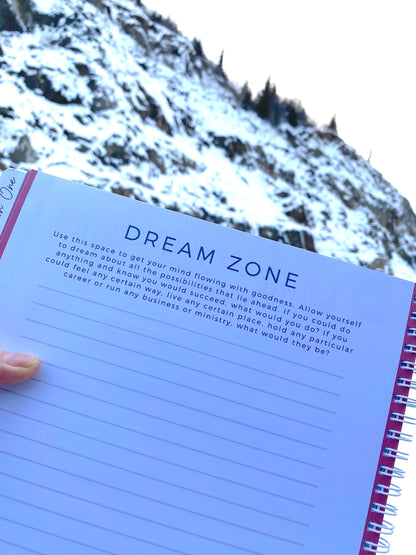 DREAM ZONE
Use this space to get your mind flowing with goodness. Allow yourself
to dream about all the possibilities that lie ahead. If you could do
anything and know you would succeed, what would you do? If you
could feel any certain way, live any certain place, hold any particular
career or run any business or ministry, what would they be?
One